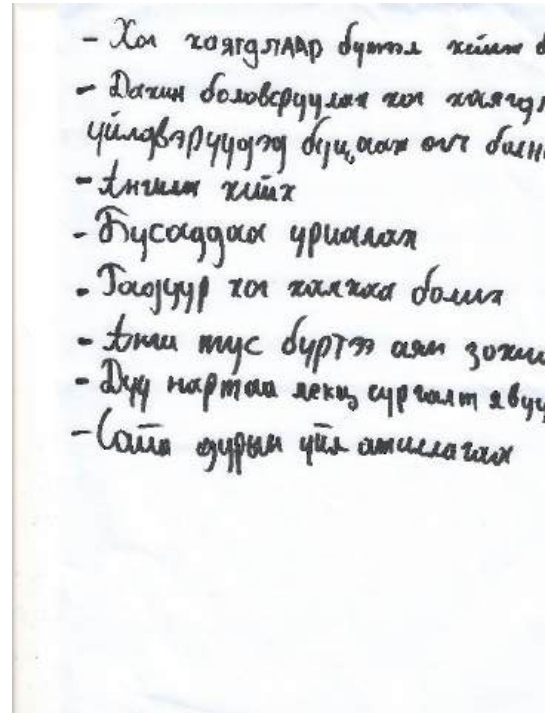 - Хог хаягдлаар бүтээл хийж б
- Дахин боловсруулах хог хаягд
үйлдвэрүүдэд буцааж өгч болн
- Ангилж хийх
- Бусаддаа уриалах
- Гаодуур хог хаяхаа болих
- Анги тус бүртээ аян зохи
- Дүү нартаа лекц сургалт явуу
- Сайн дурын үйл ажиллагаа